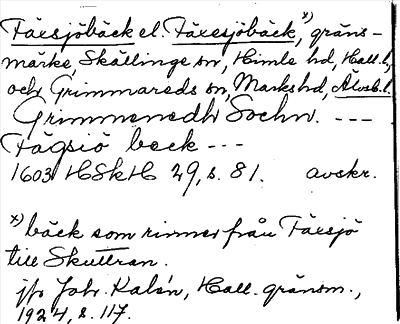 Färsjöbäck el. Färesjöbäck,ˣ⁾ gräns-
märke, Skällinge sn, Himle hd, Hall. l,
och Grimmareds sn, Marks hd, Älvsb. l.
Grimmenedh Sochn. ---
Fägsiö beck ---
1603 HSkH 29, s. 81. avskr.
x) bäck som rinner från Färsjö
till Skuttran.
jfr Joh. Kalén, Hall. gränsm.,
1924, s. 117.